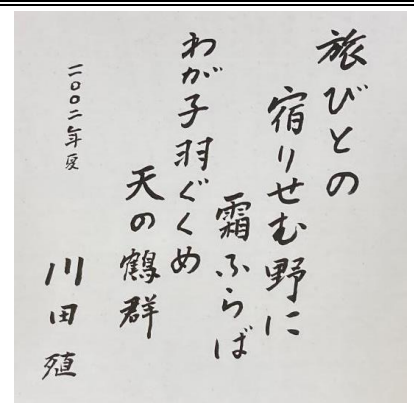 旅びとの
宿りせむ野に
霜ふらば
わが子羽ぐくめ
天の鶴群
二〇〇二年夏
川田殖